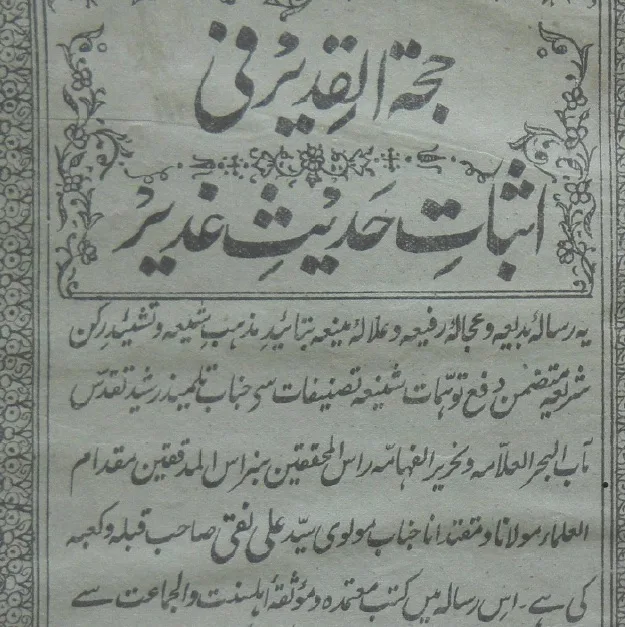 حجۃ القدیر فی
اثباتِ حَدیثِ غدیر
یہ رسالۂ بدیعہ و عجالۂ رفیعہ و علالۂ منیعہ بتائیدِ مذہبِ شیعہ و تشئیدِ رکن
شریعہ متضمن دفع توہّمات شنیعہ تصنیفات سی جناب تلمیذ رشید تقدّس
مآب البحر العلّامہ و نحریر الفہامّہ راس المحققین نبراس المدققین مقدام
العلماء مولانا و مقتدانا جناب مولوی سیّد علی نقی صاحب قبلہ و کعبہ
کی ہے۔ اس رسالہ میں کتب معتمدہ و مؤثقۂ اہلسنت والجماعت سے